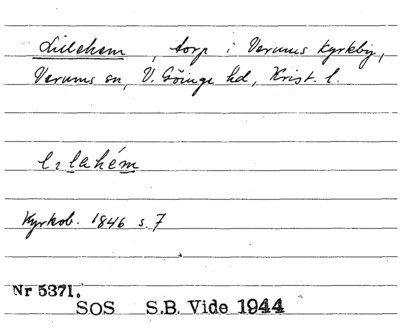 Lillehem, torp i Verums Kyrkby,
Verums sn, V. Göinge hd, Krist. l.
Kyrkob. 1846 s. 7
Nr 5371.
SOS S.B. Vide 1944